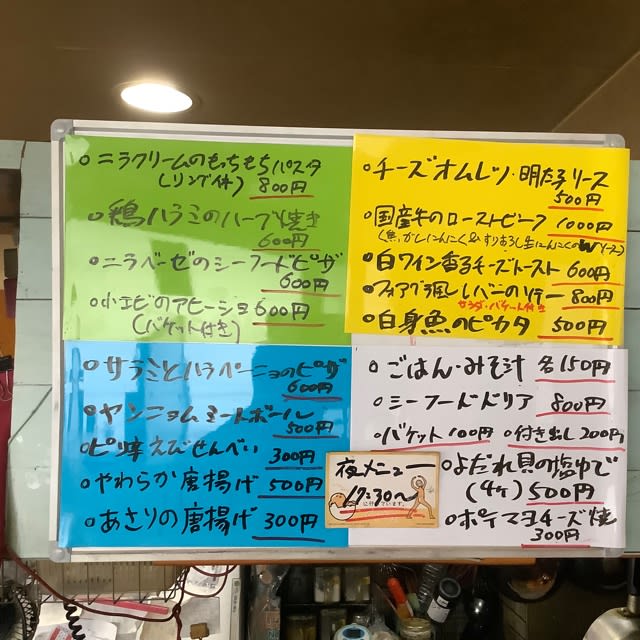 ○ニラクリームのもっちもちパスタ
(リング体) 800円
○鶏ハラミのハーブ焼き
600円
○ニラベーゼのシーフードピザ
600円
○小エビのアヒージョ 600円
(バケット付き)
○チーズオムレツ・明太子リース
500円
○国産牛のローストビーフ 1000円
(焦がしにんにく&すりおろし生にんにくのWソース)
○白ワイン香るチーズトースト 600円
○フォアグラ
レバーのソテー 800円
サラダ・バケット付き
○白身魚のピカタ 500円
○サラミとハラペーニョのピザ
600円
○ヤンニョムミートボール
500円
○ピリ辛えびせんべい 300円
○やわらか唐揚げ 500円
○あさりの唐揚げ 300円
○ごはん・みそ汁 各150円
○シーフードドリア 800円
○バケット100円 ○付き出し200円
○よだれ貝の塩ゆで
(4ケ) 500円
○ポテマヨチーズ焼
300円
夜メニュー
17:30〜